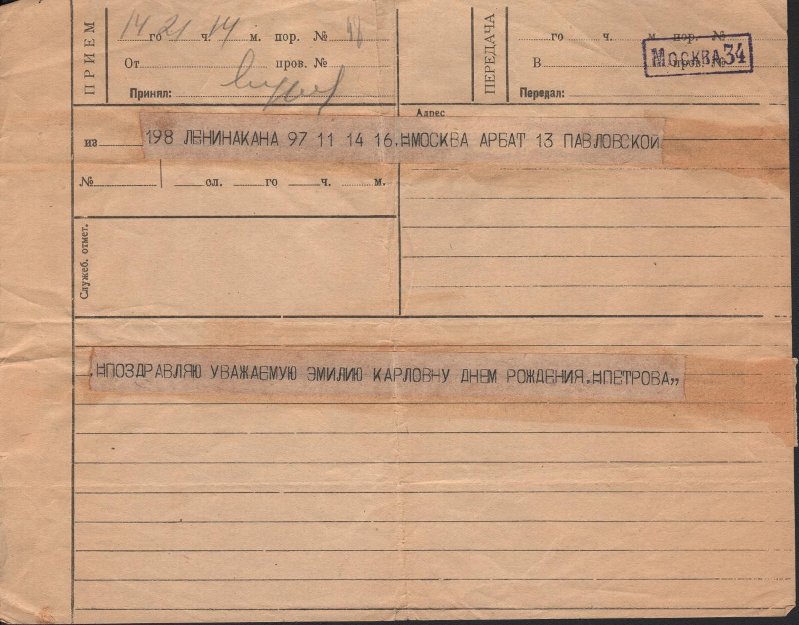 ПРИЕМ
14 го 21 ч. 14 м. пор. № 48
От пров. №
Принял:
ПЕРЕДАЧА
го ч. м. пор. №
В пров. №
Передал:
МОСКВА 34
Адрес
из 198 ЛЕНИНАКАНА 97 11 14 16.=МОСКВА АРБАТ 13 ПАВЛОВСКОЙ
№ сл. го ч. м.
Служеб. отмет.
.=ПОЗДРАВЛЯЮ УВАЖАЕМУЮ ЭМИЛИЮ КАРЛОВНУ ДНЕМ РОЖДЕНИЯ.=ПЕТРОВА„